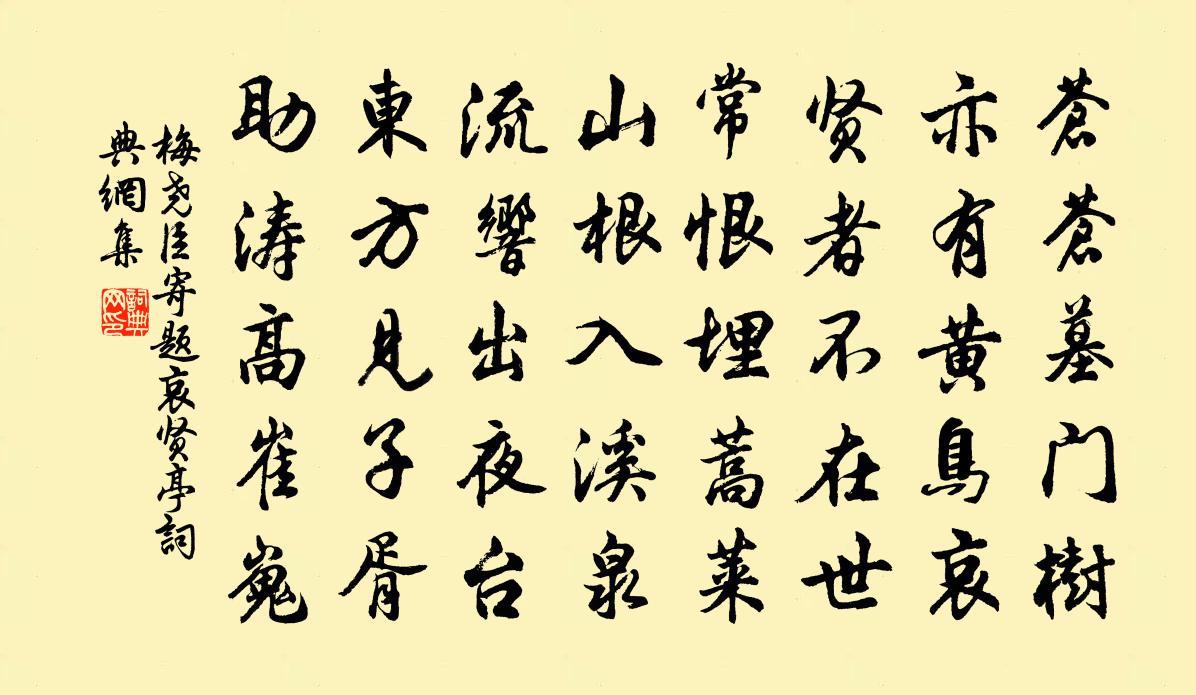 蒼蒼墓门樹
亦有黃鳥哀
贤者不在世
常恨埋蒿莱
山根入溪泉
流響出夜台
東方見子胥
助涛高崔嵬
梅尧臣寄题哀贤亭詞
典網集
詞典
网印